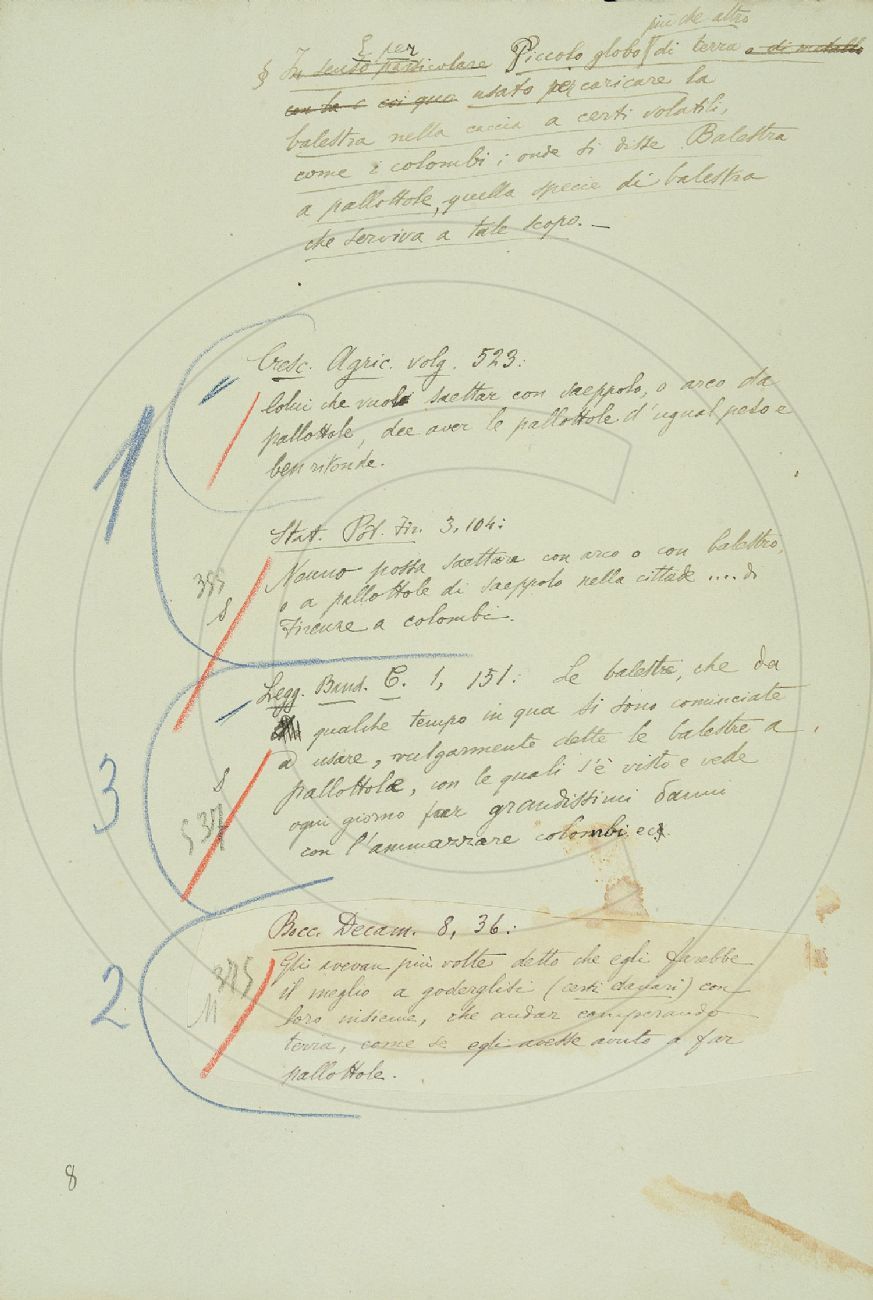 più che altro
E per
§ In senso particolare Piccolo globo di terra o di metallo
con la c cui qua usato per caricare la
balestra nella caccia a certi volatili,
come i colombi; onde si disse Balestra
a pallottole, quella specie di balestra
che serviva a tale scopo. –
Cresc. Agric. volg. 523:
Colui che vuole saettar con saeppolo, o arco da
pallottole, dee aver le pallottole d'ugual peso e
ben ritonde.
Stat. Pot. Fir. 3, 104:
Neuno possa saettare con arco o con balestro,
o a pallottole di saeppolo nella cittade .... di
Firenze a colombi.
385
S
1
Legg. Band. C. 1, 151: Le balestre, che da
qualche tempo in qua si sono cominciate
a usare, vulgarmente dette le balestre a
pallottole, con le quali s'è visto e vede
ogni giorno far grandissimi danni
con l'ammazzare colombi ec.
S
537
3
Bocc. Decam. 8, 36:
Gli avevan più volte detto che egli farebbe
il meglio a goderglisi (certi danari) con
loro insieme, che andar comperando
terra, come se egli avesse avuto a far
pallottole.
375
M
2
8